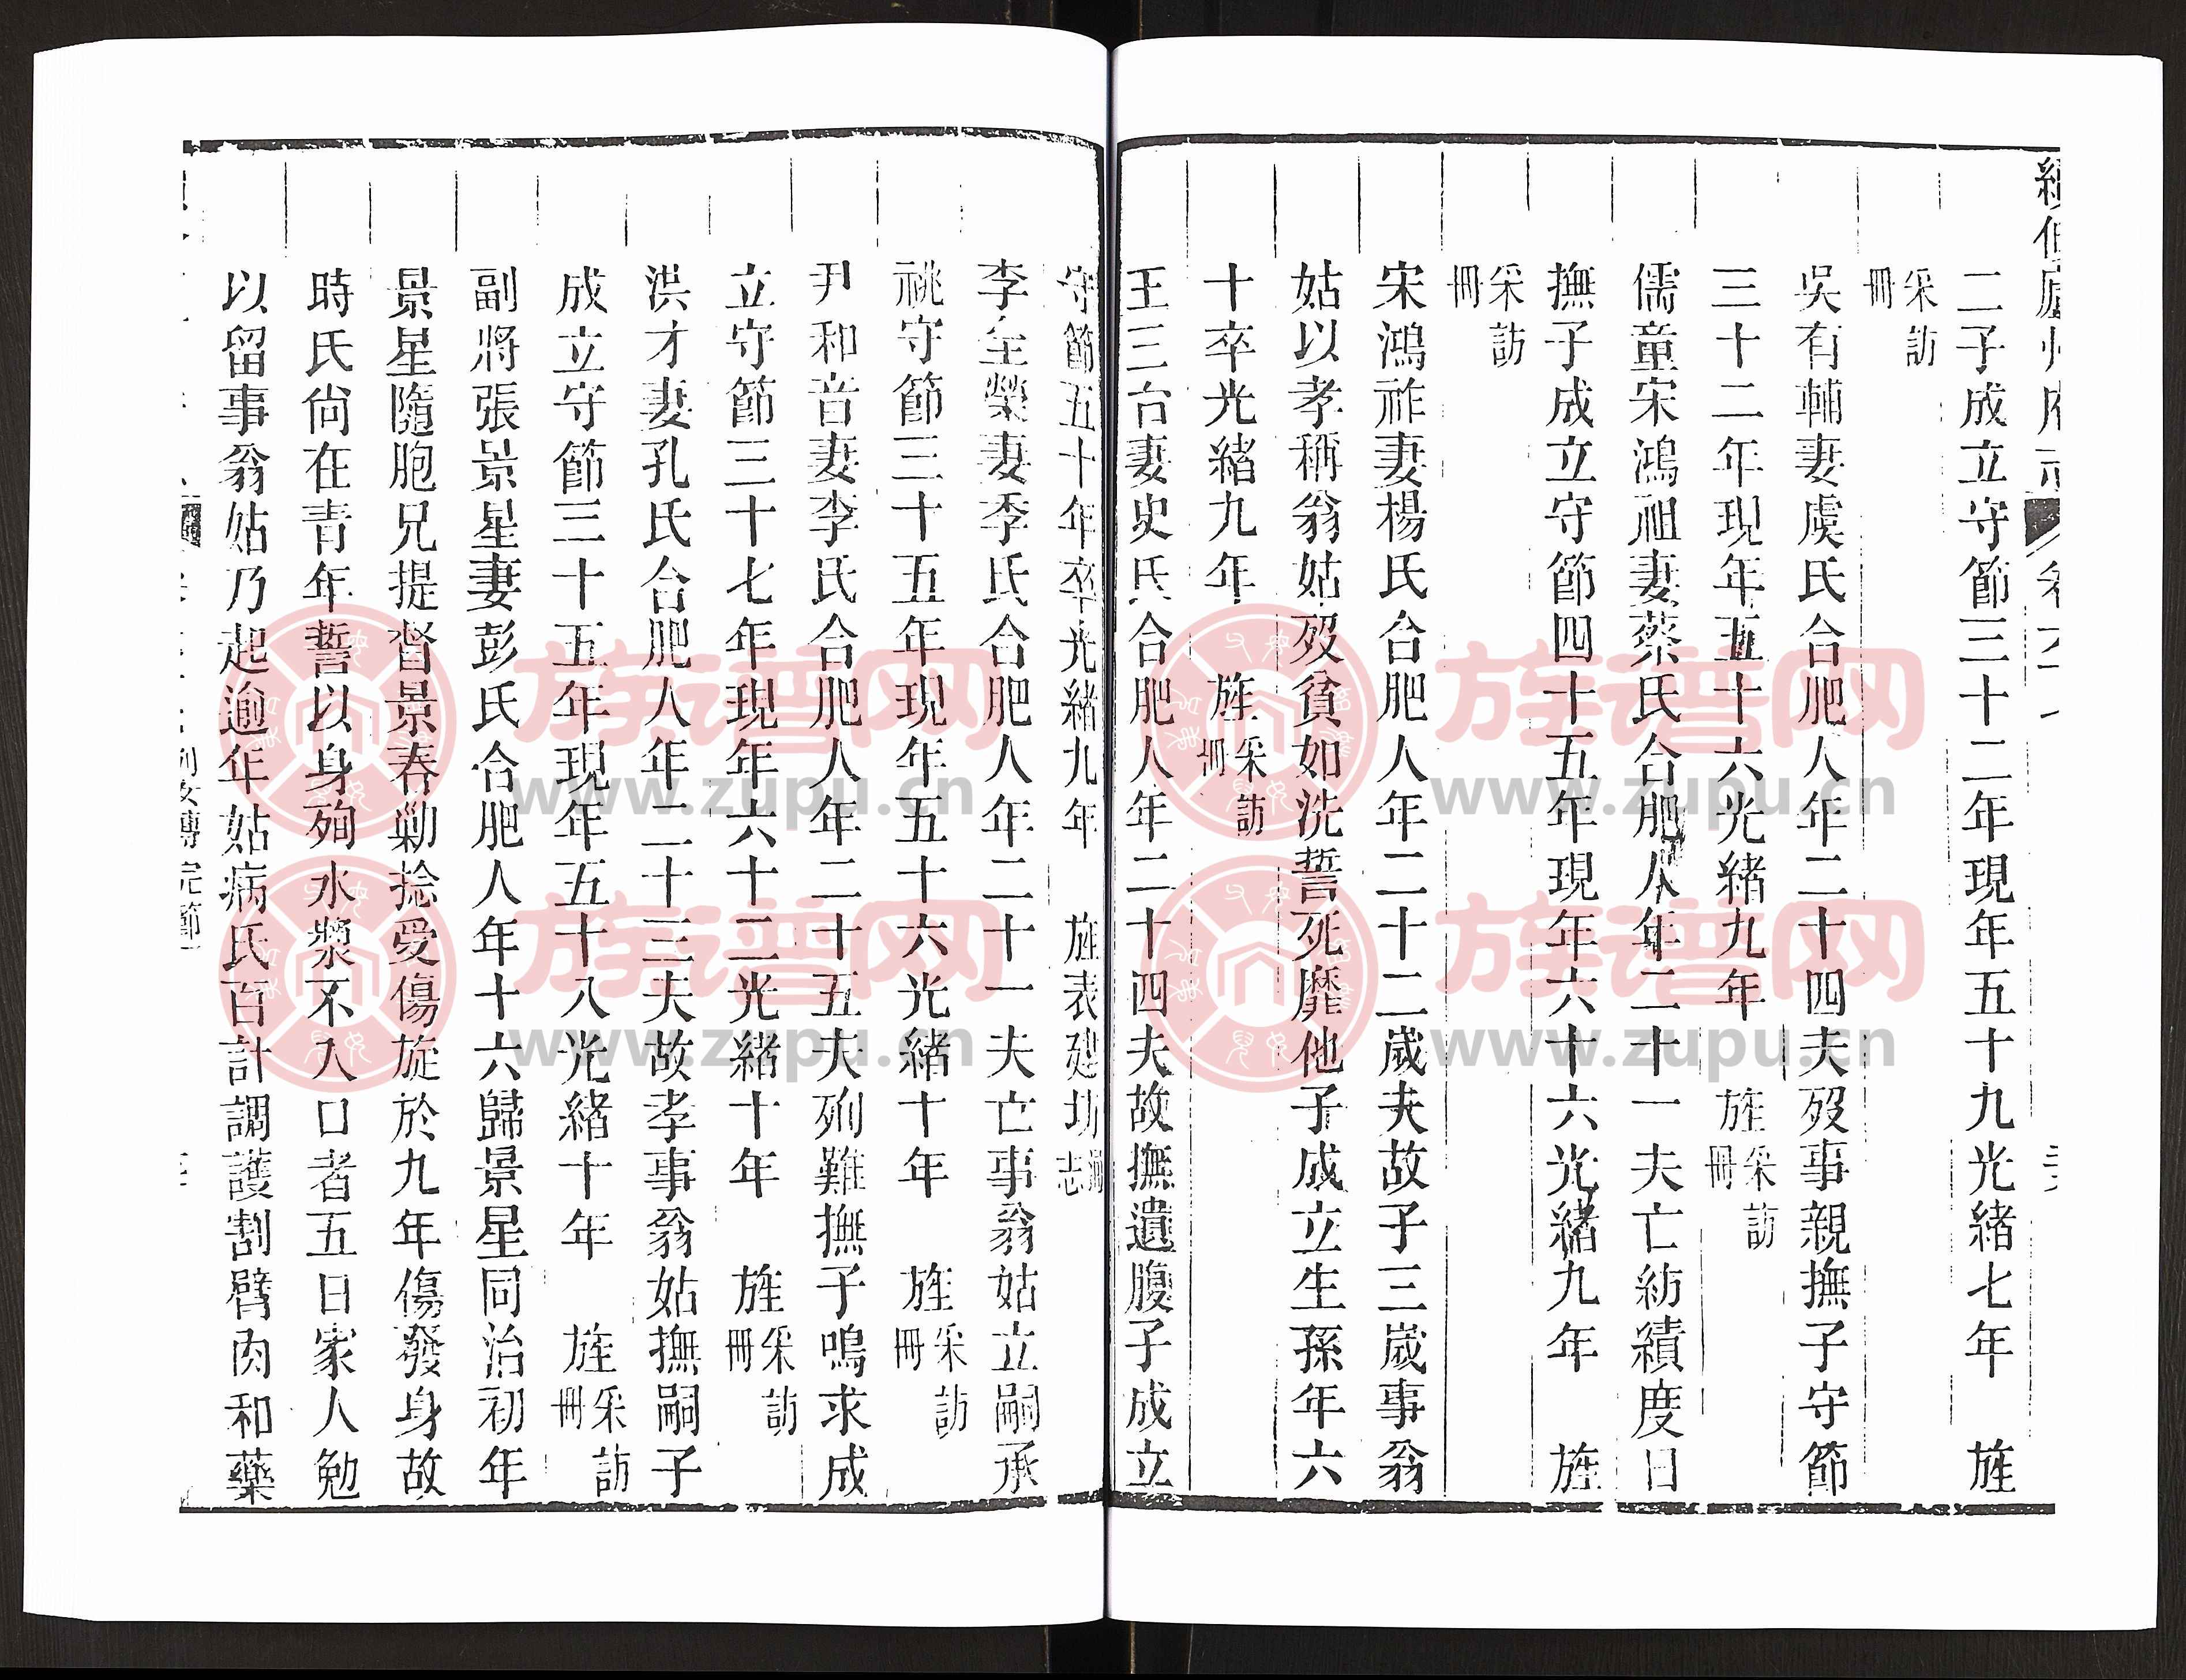 二子成立守節三十二年現年五十九光緒七年 旌
采訪
冊
吳有輔妻虞氏合肥人年二十四夫歿事親撫子守節
三十二年現年五十六光緒九年 旌采訪冊
儒童宋鴻祖妻蔡氏合肥人年二十一夫亡紡績度日
撫子成立守節四十五年現年六十六光緒九年 旌
采訪
冊
宋鴻祚妻楊氏合肥人年二十二歲夫故子三歲事翁
姑以孝稱翁姑歿貧如洗誓死靡他子成立生孫年六
十卒光緒九年 旌采訪冊
王三台妻史氏合肥人年二十四夫故撫遺腹子成立
守節五十年卒光緒九年 旌表建坊志
李全榮妻季氏合肥人年二十一夫亡事翁姑立嗣承
祧守節三十五年現年五十六光緒十年 旌采訪冊
尹和音妻李氏合肥人年二十五夫殉難撫子鳴求成
立守節三十七年現年六十二光緒十年 旌采訪冊
洪才妻孔氏合肥人年二十三夫故孝事翁姑撫嗣子
成立守節三十五年現年五十八光緒十年 旌采訪冊
副將張景星妻彭氏合肥人年十六歸景星同治初年
景星隨胞兄提督景春勦捻受傷旋於九年傷發身故
時氏尙在青年誓以身殉水漿不入口者五日家人勉
以留事翁姑乃起逾年姑病氏百計調護割臂肉和藥
列女傳完節
族谱网
www.zupu.cn
族谱网
www.zupu.cn
族谱网
www.zupu.cn
族谱网
www.zupu.cn